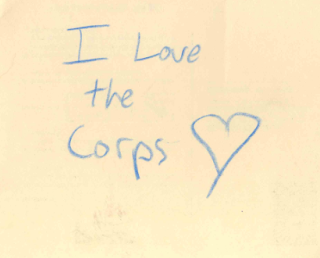 I Love
the
Corps